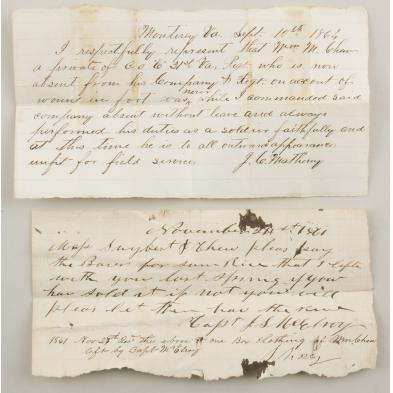 Monterey Va. Sept. 10th 1864
I respectfully represent that Wm M. Chew
a private of Co "E" 31st Va. Regt. who is now
absent from his Company & Regt. on account of
wound in foot was never while I commanded said
company absent without leave and always
performed his duties as a soldier faithfully and
at this time he is to all outward appearance
unfit for field service. J. C. Matheny
November 21st 1861
Mess Seybert & Chew pleas pay
the Barer for sum that I left
with you last spring if you
hav sold it if not you will
pleas let them hav the same
Capt J S McElroy
1861 Nov 27th Rec the abov & one Box clothing of Wm Chew
left by Capt McElroy